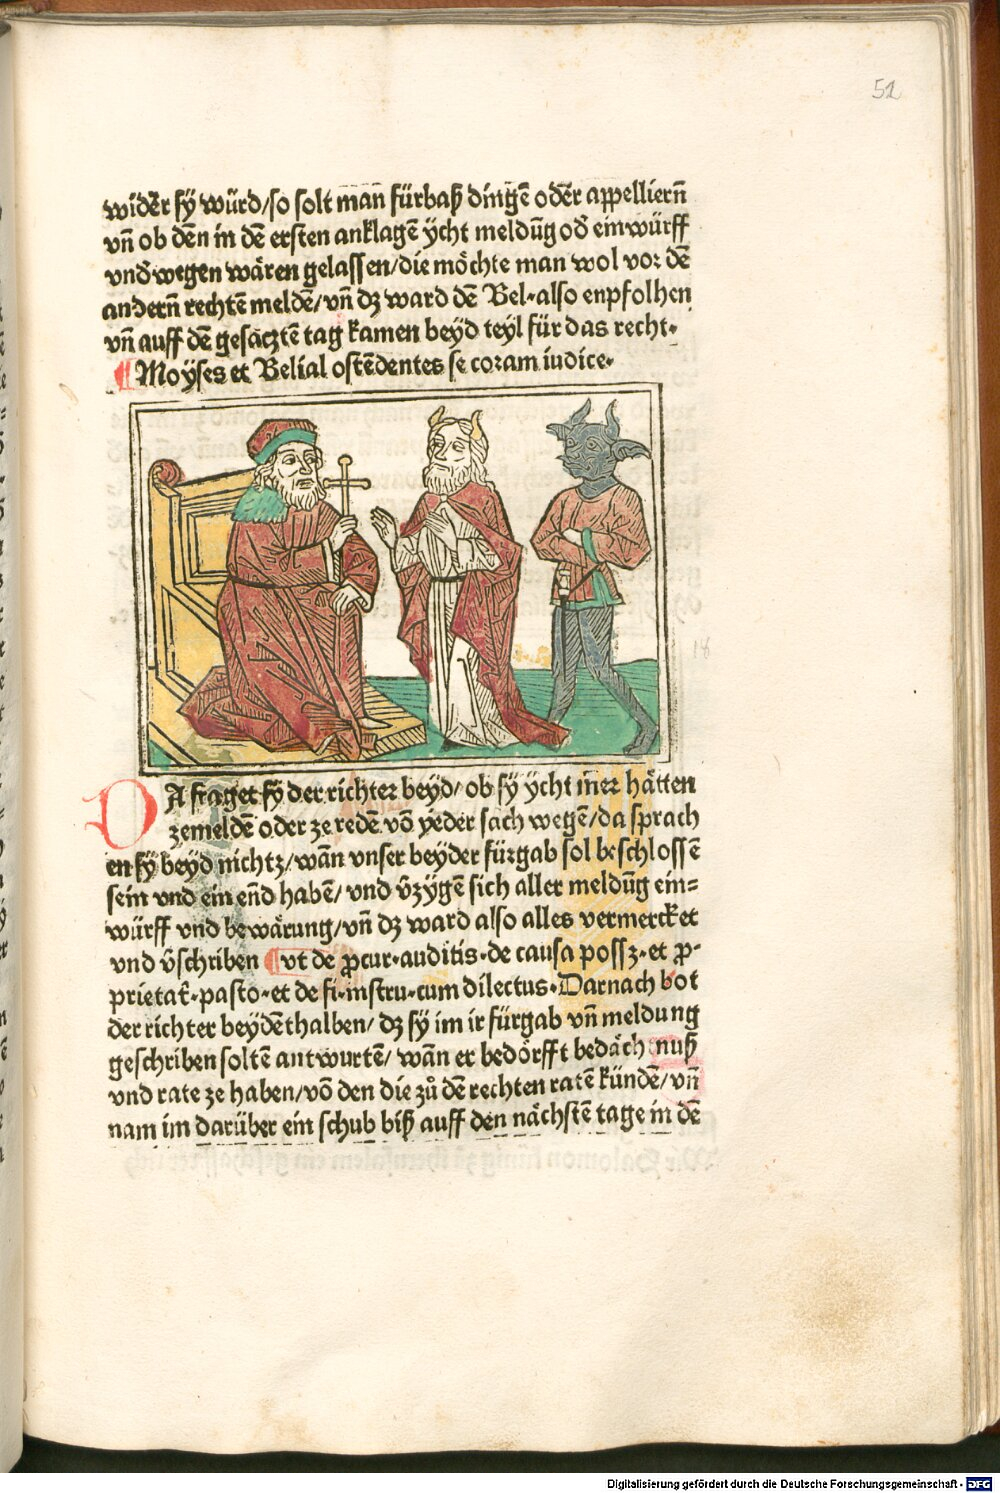 52
wider sÿ würd/so solt man fürbaß dingē oder appelliern̄
vn̄ ob dēn in dē ersten anklagē ÿcht meldūg od̕ einwürff
vnd̕wegen wären gelassen/die möchte man wol vor dē
andern̄ rechtē meldē/vn̄ dz ward dē Bel·also enpfolhen
vn̄ auff dē gesäcztē tag kamen beÿd teÿl für das recht·
¶ Moÿses et Belial ostēdentes se coram iudice·
18
DA fraget sÿ der richter beÿd/ob sÿ ÿcht m̄er hätten
zemeldē oder ze redē vō ÿeder sach wegē/da sprach
en sÿ beÿd nichtz/wān vnser beÿder fürgab sol beschlossē
sein vnd ein en̄d habē/vnd v̄zÿgē sich aller meldūg ein=
würff vnd bewärung/vn̄ dz ward also alles vermercket
vnd v̄schriben ¶ vt de ꝓcur·auditis·de causa possz·et ꝓ-
prietat̄·pasto·et de fi·instru·cum dilectus·Darnach bot
der richter beÿdēthalben/dz sÿ im ir fürgab vn̄ meldung
geschriben soltē antwurtē/wān er bedörfft bedächtnuß
vnd rate ze haben/vō den die zů dē rechten ratē kündē/vn̄
nam im darüber ein schub biß auff den nächstē tage in dē
Digitalisierung gefördert durch die Deutsche Forschungsgemeinschaft - DFG